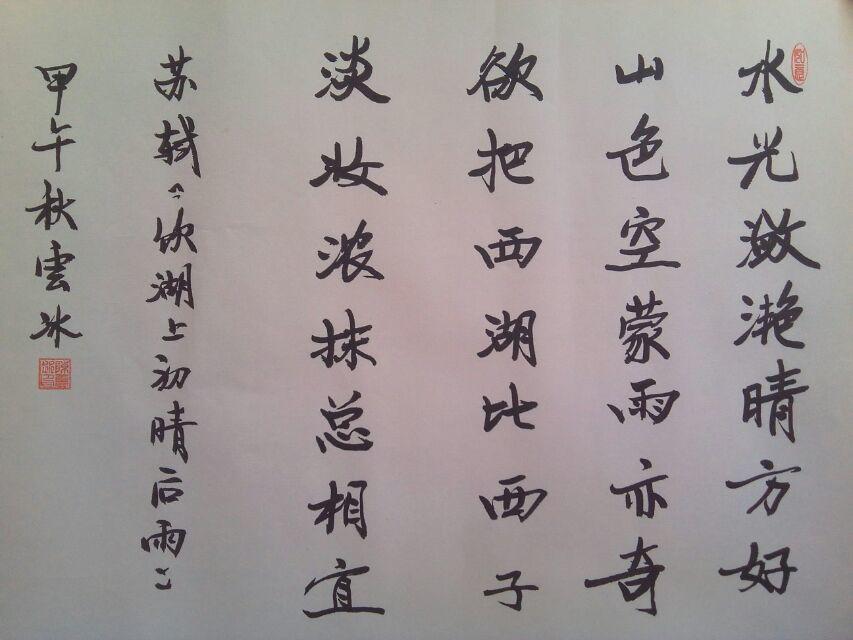 水光潋滟晴方好
山色空蒙雨亦奇
欲把西湖比西子
淡妆浓抹总相宜
苏轼《饮湖上初晴后雨》
甲午秋雲冰